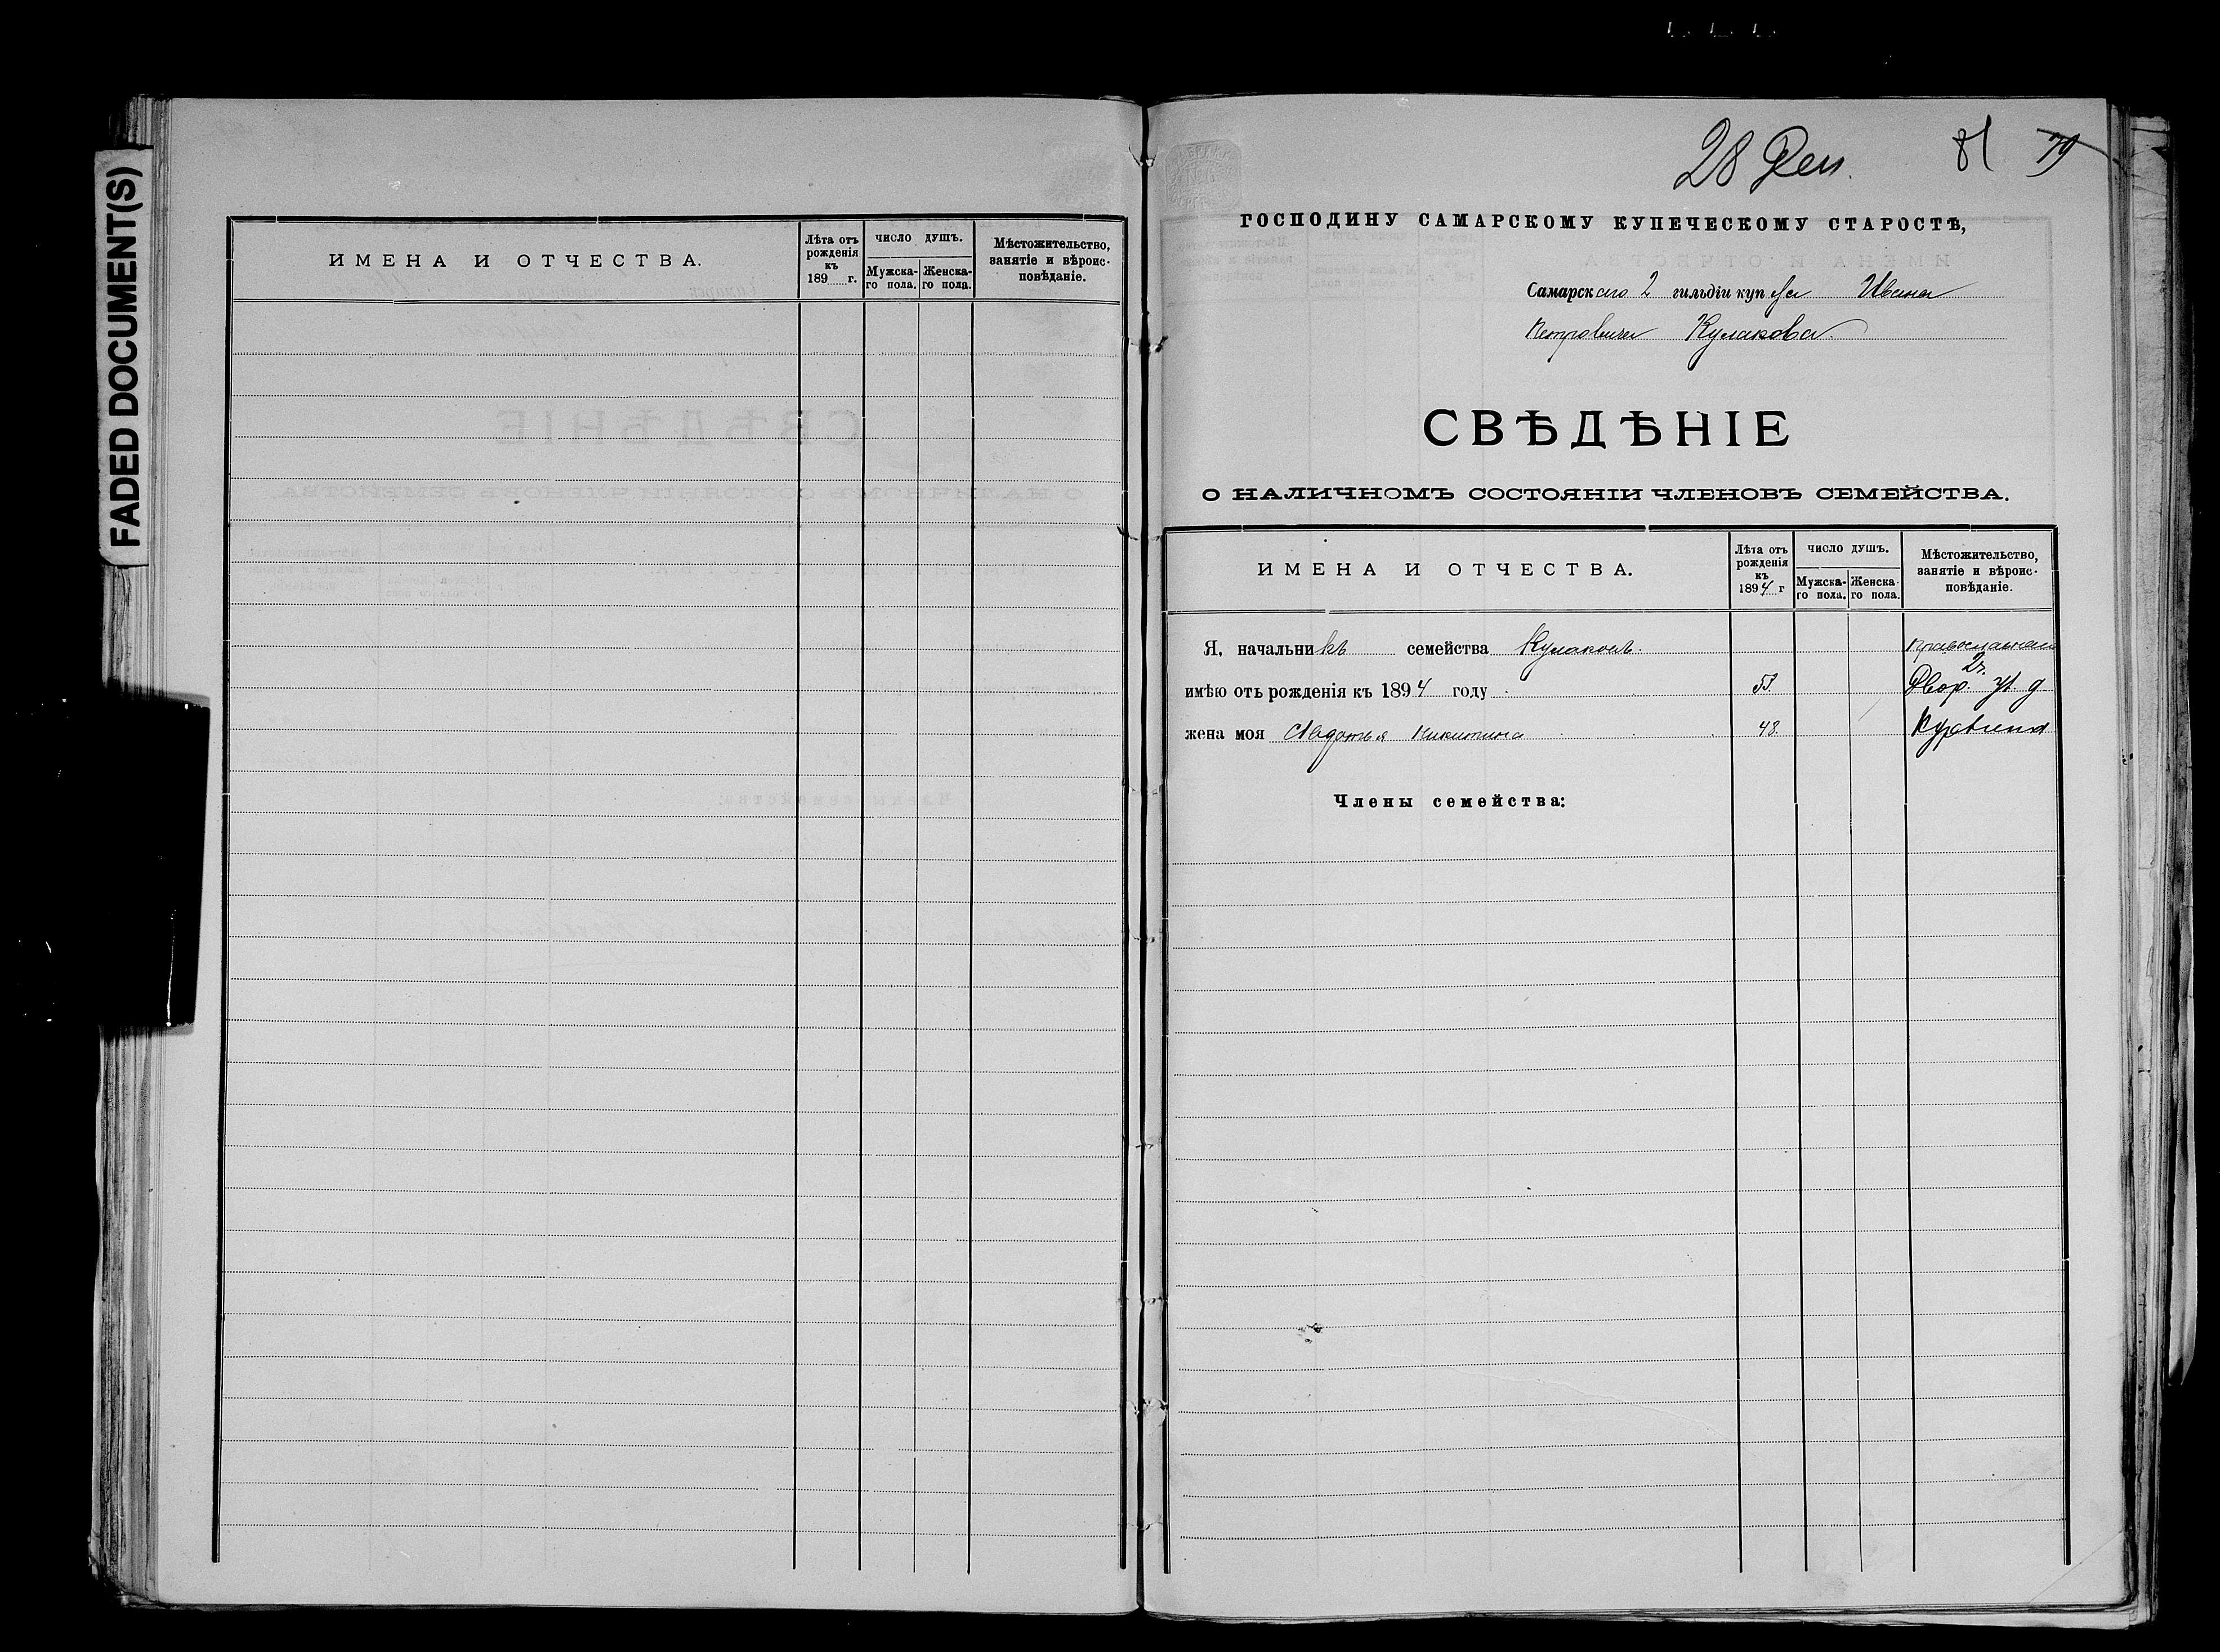 FADED DOCUMENT(S)
ИМЕНА И ОТЧЕСТВА.
Лѣта отъ рожденія къ 189 г.
ЧИСЛО ДУШЪ.
Мужска-го пола.
Женска-го пола.
Мѣстожительство, занятіе и вѣроис-повѣданіе.
28 Дек.
81 79
ГОСПОДИНУ САМАРСКОМУ КУПЕЧЕСКОМУ СТАРОСТѢ,
Самарскаго 2 гильдіи купца Ивана
Петровича Кулакова
СВѢДѢНІЕ
О НАЛИЧНОМЪ СОСТОЯНІИ ЧЛЕНОВЪ СЕМЕЙСТВА.
ИМЕНА И ОТЧЕСТВА.
Лѣта отъ
рожденія
къ
1894 г
ЧИСЛО ДУШЪ.
Мужска-
го пола.
Женска-
го пола.
Мѣстожительство,
занятіе и вѣроис-
повѣданіе.
Я, начальникъ семейства Кулаковъ.
имѣю отъ рожденія къ 1894 году 53
Двор. ул д
жена моя Авдотья Никитина 48.
Члены семейства: